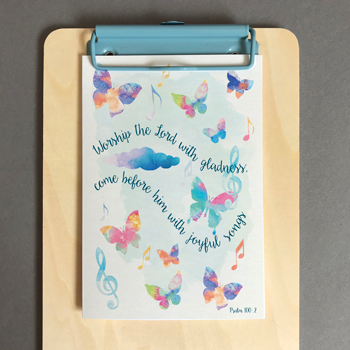 Worship the Lord with gladness.
come before him with joyful songs
Psalm 100:2